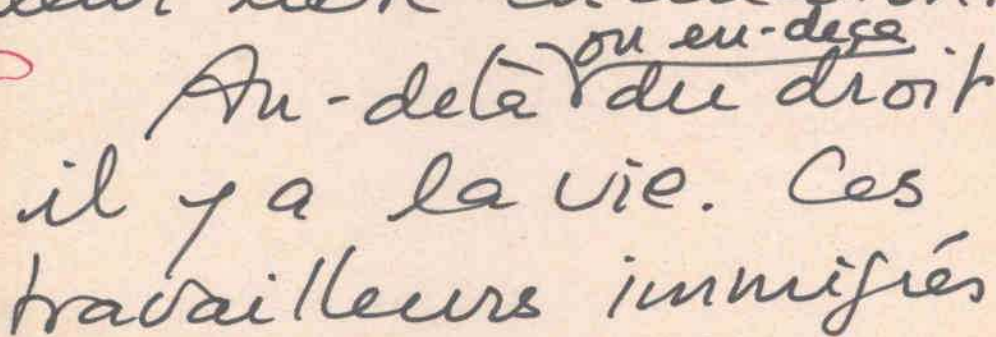 ou en-deça
Au-delà du droit
il y a la vie. Ces
travailleurs immigrés